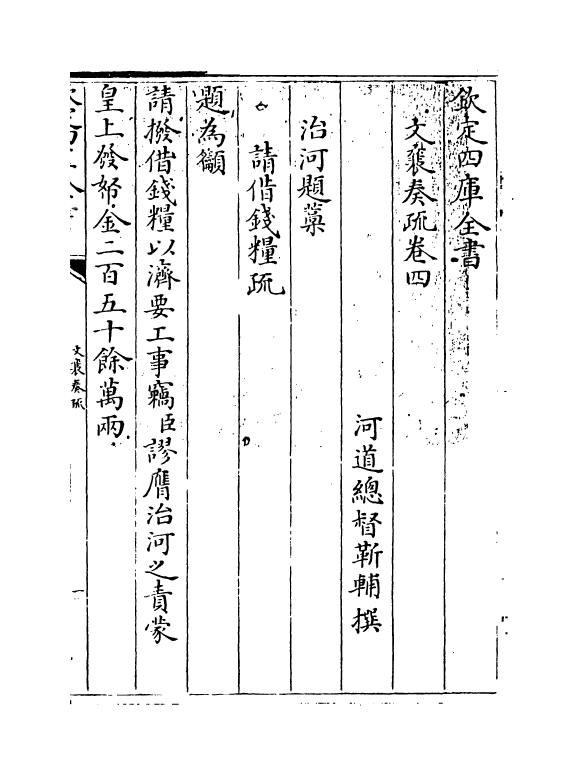 欽定四庫全書
文襄奏疏卷四
河道總督靳輔撰
治河題藁
請借錢糧疏
題為籲
請撥借錢糧以濟要工事竊臣謬膺治河之責蒙
皇上發帑金二百五十餘萬兩
文襄奏疏
一